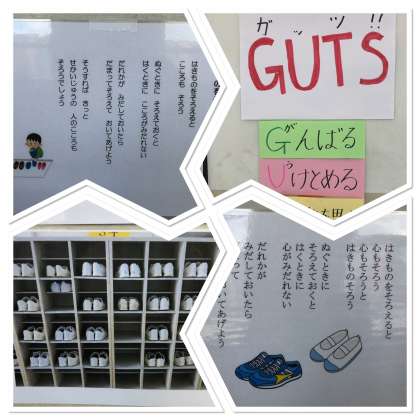 はきものをそろえると
こころも そろう
ぬぐときに そろえておくと
はくときに こころがみだれない
だれかが みだしておいたら
だまってそろえて おいてあげよう
そうすれば きっと
せかいじゅうの 人のこころも
そろうでしょう
ガッツ!!
GUTS
Gがんばる
Uうけとめる
はきものをそろえると
心もそろう
心もそろうと
はきものそろう
ぬぐときに
そろえておくと
はくときに
心がみだれない
だれかが
みだしておいたら
って
いてあげよう